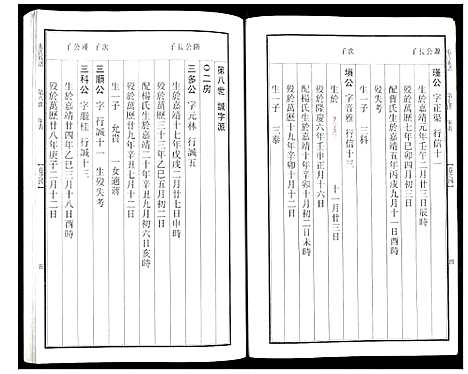 源公長子
瑾公 字正榘 行信十一
生於嘉靖元年壬午二月廿三日辰時
歿於萬歷七年己卯四月初二日
配曹氏生於嘉靖五年丙戌九月十一日酉時
歿失考
生一子 三科
次子
塤公 字音雅 行信十三
生於 十一月廿三日
歿於隆慶六年壬申正月十一日
配楊氏生於嘉靖 十月初二日未時
歿於萬歷十九年辛卯十月初二日
生一子 三泰
第八世 誠字派
〇二房
隆公長子
三多公 字元林 行誠五
生於嘉靖十七年戊戌二月廿七日申時
歿於萬歷三十三年乙巳五月初二日
配楊氏生於嘉靖二十年辛丑九月初六日亥時
歿於萬歷廿九年辛丑七月十二日
生一子 允貴 一女適蔣
次子
三順公 字 行誠十一 生歿失考
瑾公子
三科公 字賜桂 行誠十三
生於嘉靖廿四年乙巳三月十八日酉時
歿於萬歷廿八年庚子二月十二日